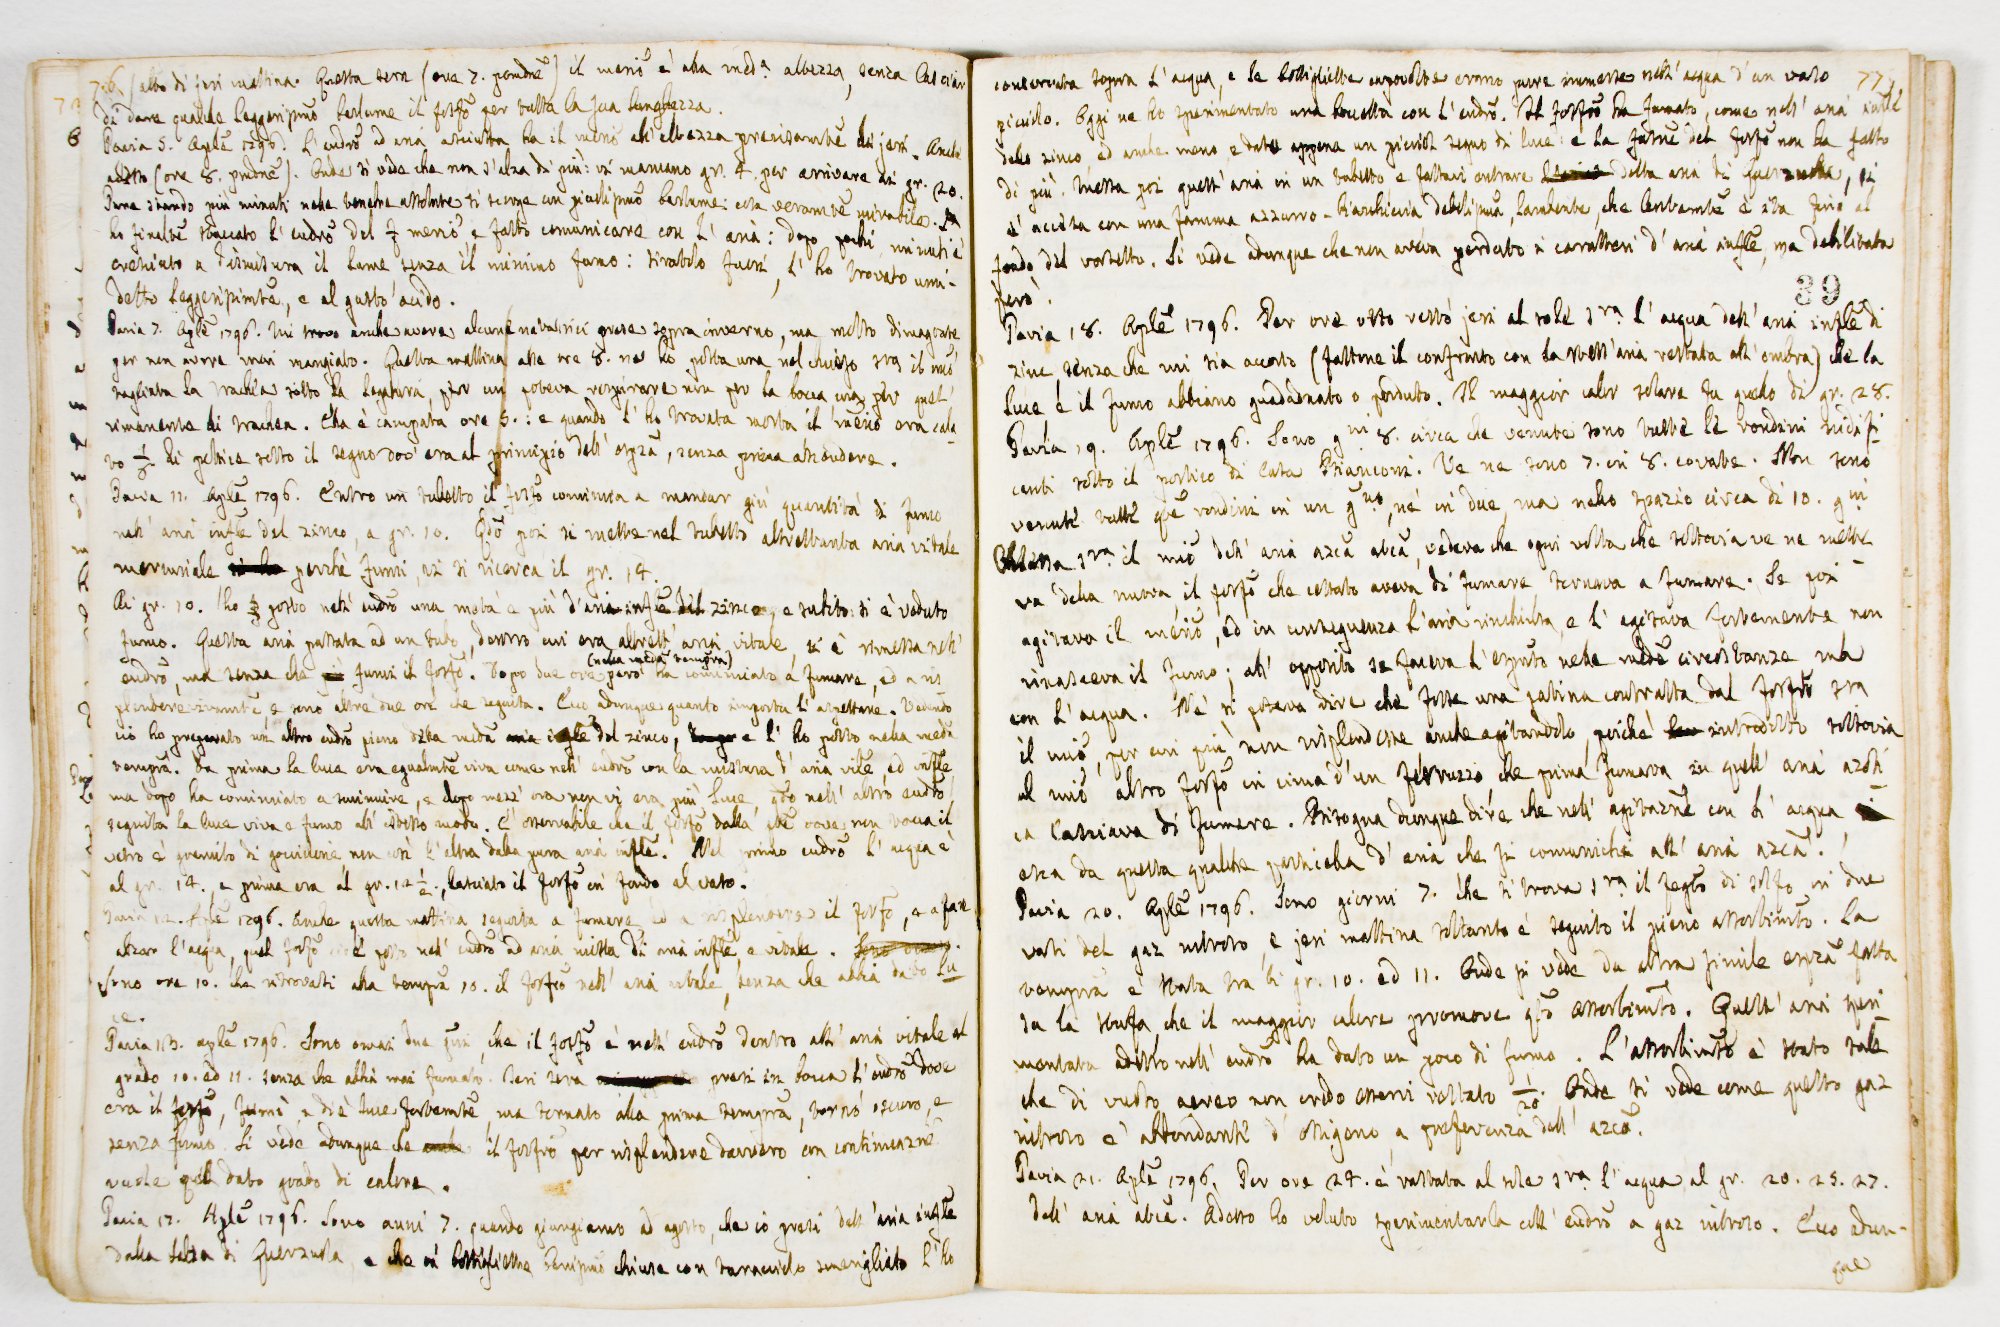 76. (alto di jeri mattina. Questa sera (ore 7. pomdne) il merio è alla meda altezza, senza lasciar
di dare qualche leggerissmo barlume il fosfo per tutta la sua lunghezza.
Pavia 5. Aple 1796. L'eudro ad aria asciutta ha il merio all'altezza precisamte di jeri. Anche
adesso (ore 8. pmdne). Onde si vede che non s'alza di più: vi mancano gr. 4. per arrivare ai gr. 20.
Pure stando più minuti nelle tenebre assolute si scorge un picciolissmo barlume: cosa veramte mirabile.
ho finalte staccato l'eudro del merio e fatto comunicare con l'aria: dopo pochi minuti è
cresciuto a dismisura il lume senza il minimo fumo: tiratolo fuori, l'ho trovato umi-
detto leggerissimte, e al gusto acido.
Pavia 7. Aple 1796. Mi trovo anche avere alcune prese sopra inverno, ma molto dimagrate
per non avere mai mangiato. Questa mattina alle ore 8. ne ho posta una nel chiuso sra il mio
tagliata la trachea sotto la legatura, per cui poteva respirare non per la bocca ma per quel
rimanente di trachea. Ella è campata ore 5.: e quando l'ho trovata morta il merio era cala
to di pollice sotto il segno dov'era al principio dell'esprza, senza prima ascendere.
Pavia 11. Aple 1796. Entro un tubetto il fosfo comincia a mandar giù quantità di fumo
nell'aria infle del zinco, a gr. 10. Qdo poi si mette nel tubetto altrettanta aria vitale
mercuriale perchè fumi, vi si ricerca il gr. 14.
Ai gr. 10. ho posto nell'eudro una metà e più d'aria infle del zinco, e subito si è veduto
fumo. Questa aria passata ad un tubo, dentro cui era altrett' aria vitale, si è rimessa nell'
eudro, ma senza che fumi il fosfo. Dopo due ore però (nella meda tempra) ha cominciato a fumare, ed a ris
plendere vivamte, e sono altre due ore che seguita. Ecco adunque quanto importa l'aspettare. Veduto
ciò ho preparato un altro eudro pieno della meda aria infle del zinco, e l'ho posto nella meda
tempra. Da prima la luce era egualmte viva come nell'eudro con la mistura d'aria vitle, ed infle
ma dopo ha cominciato a diminuire, e dopo mezz'ora non vi era più luce, qdo nell'altro eudro
seguita la luce viva e fumo all'istesso modo. È osservabile che il fosfo dalla pte ove non tocca il
vetro è guernito di goccioline non così l'altra dalla pura aria infle. Nel primo eudro l'acqua è
al gr. 14., e prima era al gr. 12 1/2, lasciato il fosfo in fondo al vaso.
Pavia 12. Aple 1796. Anche questa mattina seguita a fumare, ed a risplendere il fosfo, e a fare
alzare l'acqua, quel fosfo cioè posto nell'eudro ad aria mista di aria infle, e vitale.
Sono ore 10. che ritrovasi alla tempra 10. il fosfo nell'aria vitale, senza che abbia dato lu
ce.
Pavia 13. Aple 1796. Sono omai due gni, che il fosfo è nell'eudro dentro all'aria vitale al
grado 10. ed 11. senza che abbia mai fumato. Ieri sera presi in bocca l'eudro dove
era il fosfo, fumò, e diè luce fortemte, ma tornato alla prima tempra, tornò oscuro, e
senza fumo. Si vede adunque che il fosfo per risplendere davvero con continuazne
vuole quel dato grado di calore.
Pavia 17. Aple 1796. Sono anni 7. quando giungiamo ad agosto, che io presi dell'aria infle
dalla Salza di Querzuola, e che in bottigliette benissmo chiuse con turacciolo smerigliato l'ho
77.
conservata sopra l'acqua, e le bottigliette capovolte erano pure immerse nell'acqua d'un vaso
picciolo. Oggi ne ho sperimentato una boccetta con l'eudro. Il fosfo ha fumato, come nell'aria infle
dello zinco ed anche meno, e dato appena un picciol segno di luce: e la fusne del fosfo non ha fatto
di più. Messa poi quest'aria in un tubetto e fattavi entrare detta aria di Querzuola, si
è accesa con una fiamma azzurro-bianchiccia debilissma, lambente, che lentamte è ita fino al
fondo del vasetto. Si vede adunque che non aveva perduto i caratteri d'aria infle, ma debilitata
però.
39
Pavia 18. Aple 1796. Per ore otto restò jeri al sole sra l'acqua dell'aria infle di
zinc, senza che mi sia accorto (fattone il confronto con la stess'aria restata all'ombra) che la
luce e il fumo abbiano guadadnato o perduto. Il maggior calor solare fu quello di gr. 28.
Pavia 19. Aple 1796. Sono gni 8. circa che venute sono tutte le rondini nidifi
canti sotto il portico di Casa Bianconi. Ve ne sono 7. in 8. covate. Non sono
venute tutte qte rondini in un gno, nè in due, ma nello spazio circa di 10. gni
Chiusa sra il mio dell'aria azca atca, vedeva che ogni volta che sottovia ve ne mette
va della nuova, il fosfo che cessato aveva di fumare, tornava a fumare. Se poi
agitava il merio, ed in conseguenza l'aria rinchiusa, e l'agitava fortemente non
rinasceva il fumo; all'opposito se faceva l'espmto nelle mede circostanze ma
con l'acqua. Nè si poteva dire che fosse una patina contratta dal fosfo sra
il mio, per cui più non risplendesse anche agitandolo, poichè introdotto sottovia
al mio altro fosfo in cima d'un ferruzzo, che prima fumava in quell'aria azoti
ca lasciava di fumare. Bisogna dunque dire che nell'agitazne con l'acqua
esca da questa qualche particella d'aria che si comunichi all'aria azca.
Pavia 20. Aple 1796. Sono giorni 7. che si trova sra il fegto di solfo in due
vasi del gaz nitroso, e jeri mattina soltanto è seguito il pieno assorbimto. La
tempra è stata tra li gr. 10. ed 11. Onde si vede da altra simile esprza fatta
su la stufa che il maggior calore promove qto assorbimto. Quest'aria speri
mentata adesso nell'eudro ha dato un poco di fumo. L'assorbimto è stato tale
che di vuoto aereo non credo esservi restato 1/20. Onde si vede come questo gaz
nitroso è abbondante d'ossigeno a preferenza dell'azco.
Pavia 21. Aple 1796. Per ore 24. è restata al sole sra l'acqua al gr. 20. 25. 27.
dell'aria atca. Adesso ho voluto sperimentarla coll'eudro a gaz nitroso. Ecco adun-
que